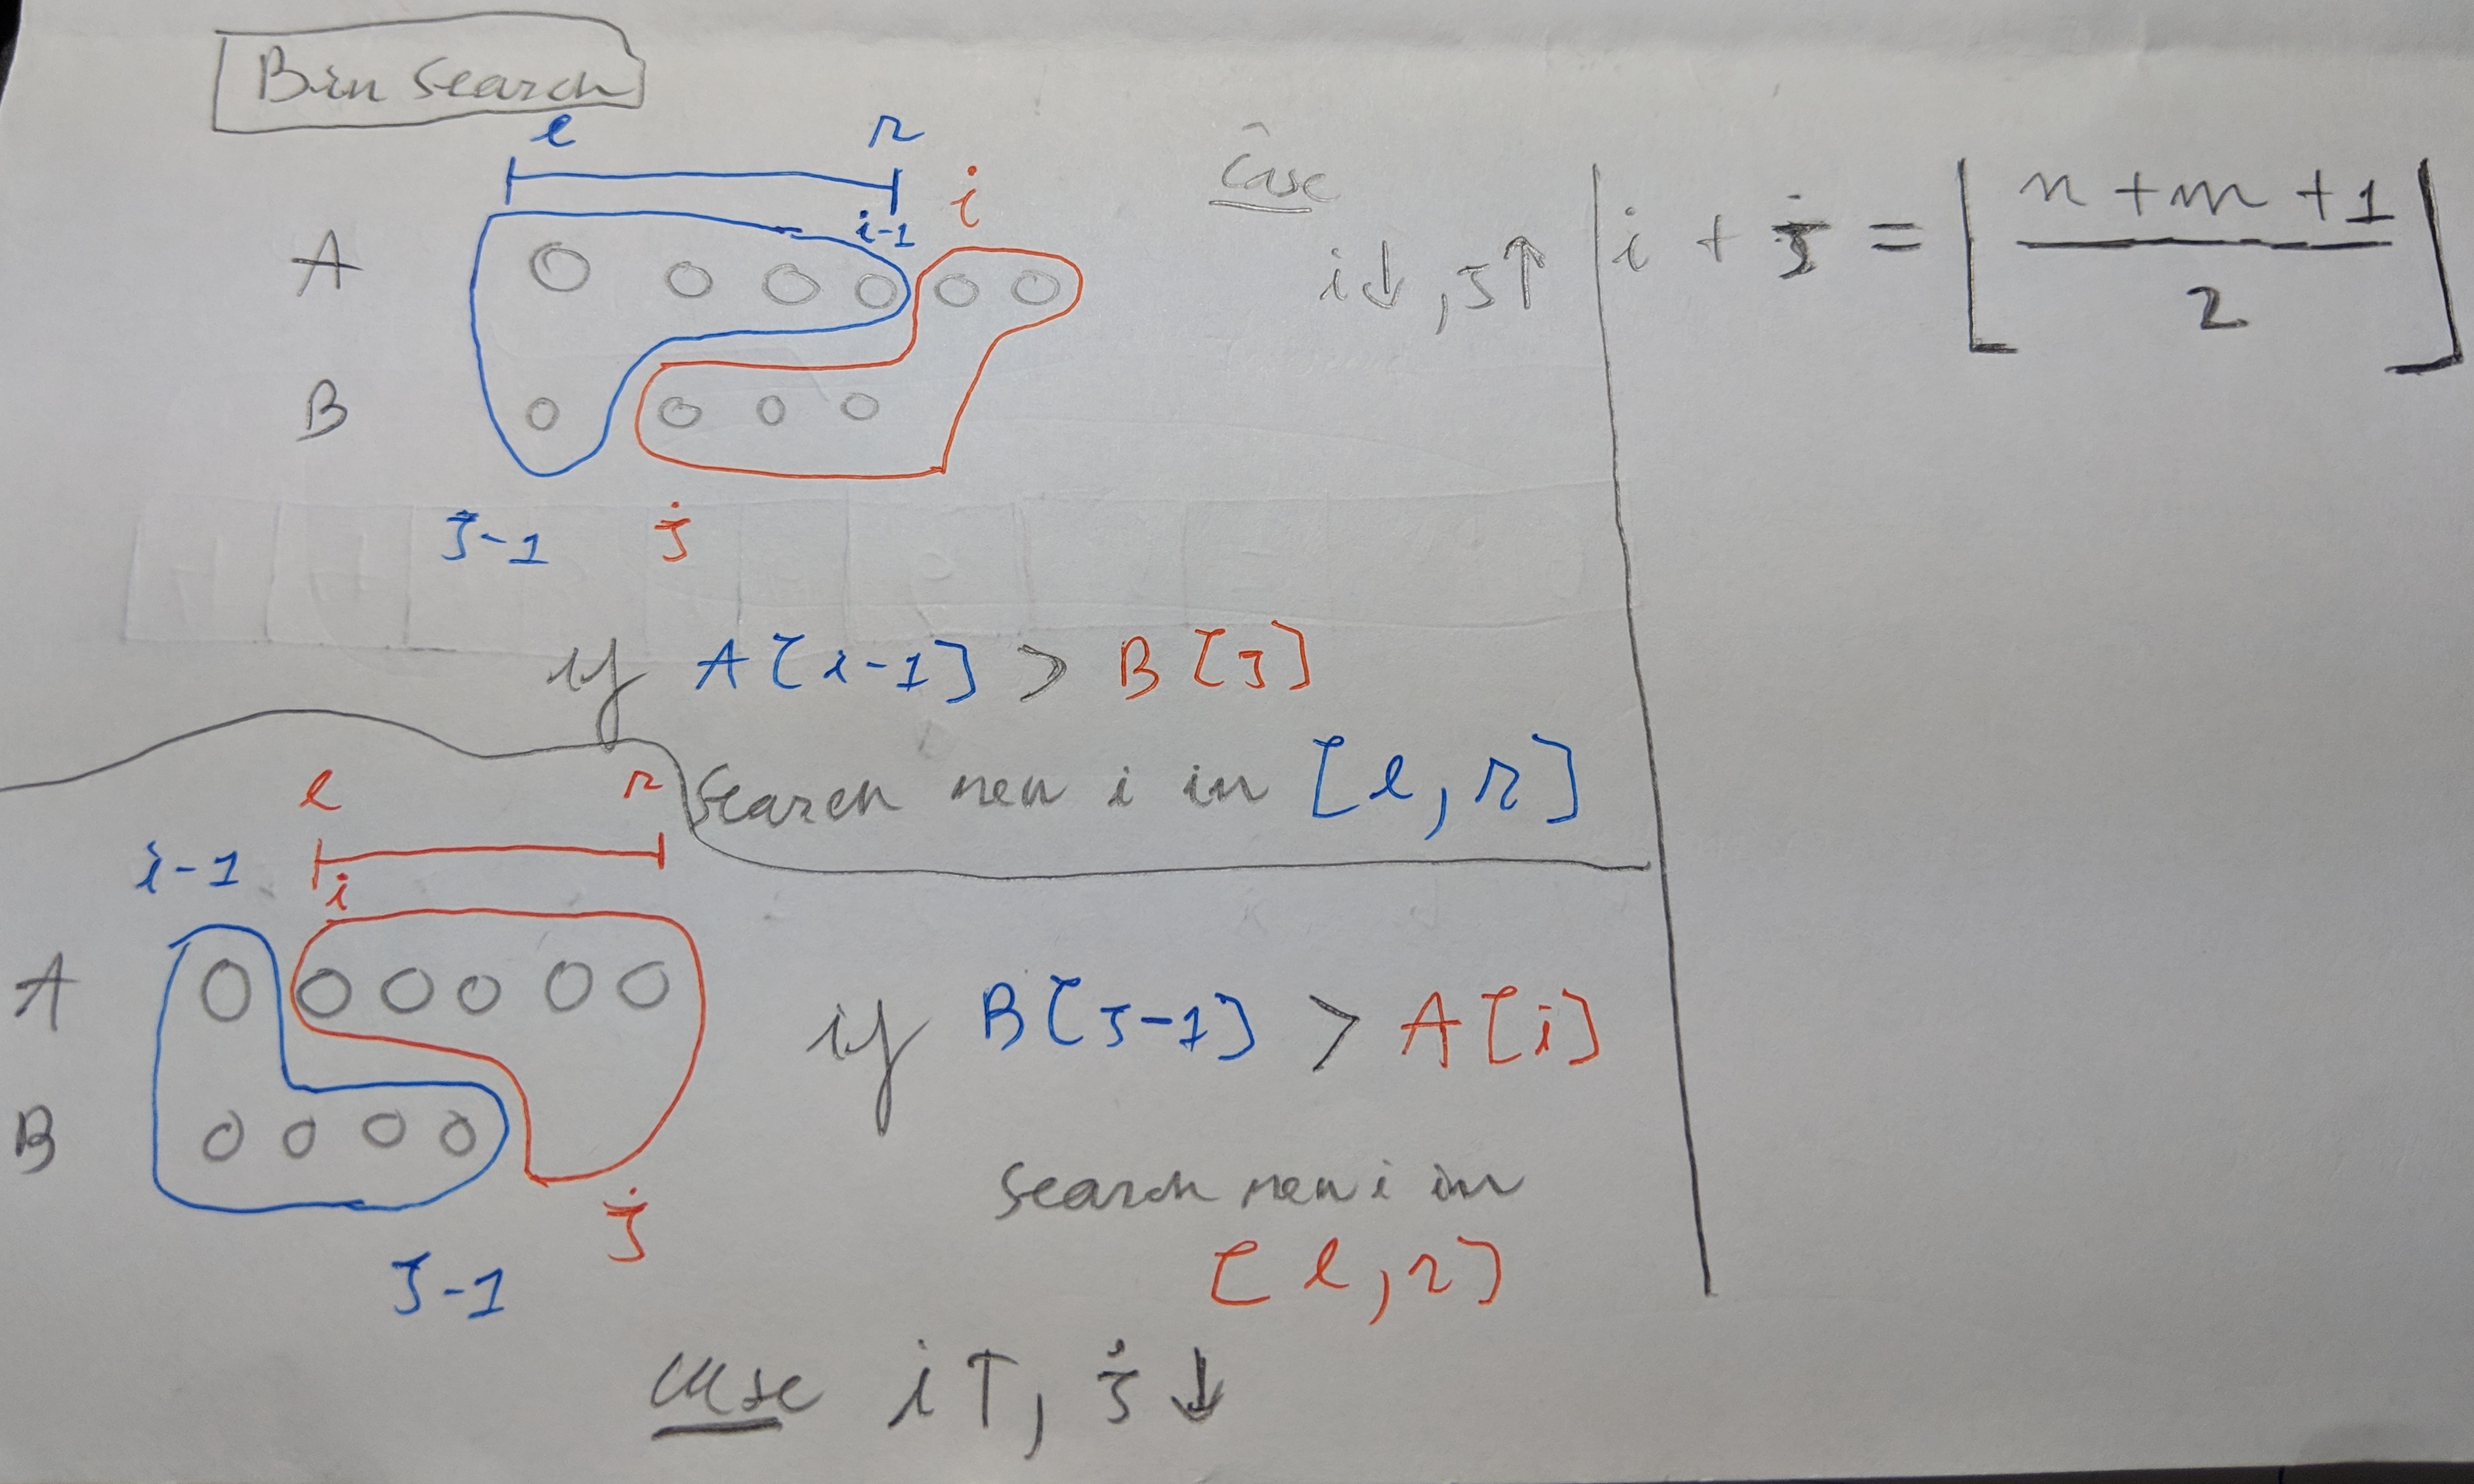 Bin Search
l r
i-1 i
A
B
j-1 j
Case
i↓, j↑
if A[i-1] > B[j]
Search new i in [l, r]
i + j = ⌊(n + m + 1) / 2⌋
l r
i-1 i
A
B
j
j-1
if B[j-1] > A[i]
Search new i in
[l, r]
case i↑, j↓